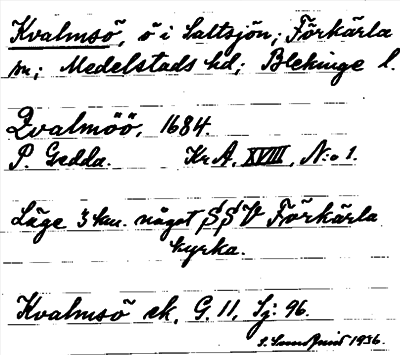 Kvalmsö, ö i Saltsjön; Förkärla
sn; Medelstads hd; Blekinge l.
Qvalmöö, 1684.
P. Gedda. Kr A, XVIII, N:o 1.
Läge 3 km. något SSV Förkärla
kyrka.
Kvalmsö ek. G. 11, Sj: 96.
1936.